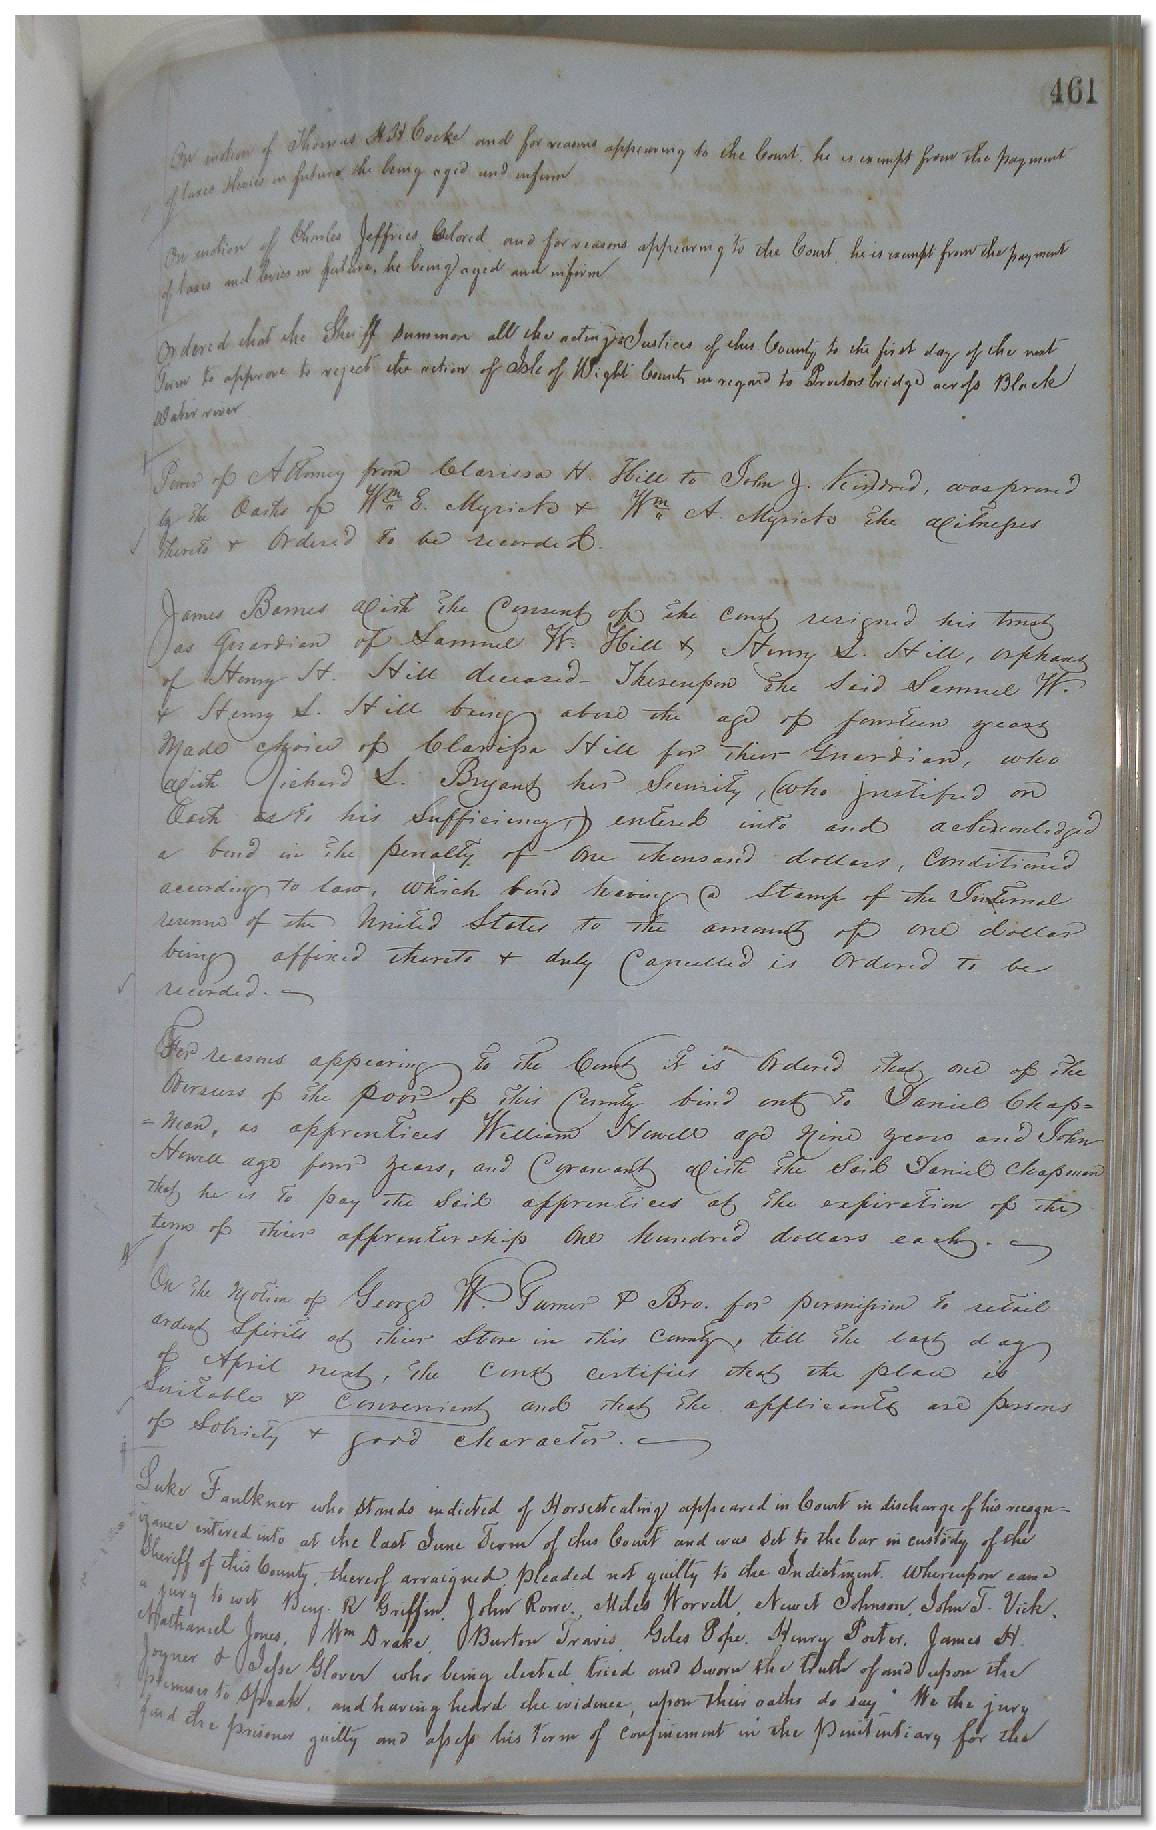 461
On motion of Thomas H H Cocke and for reasons appearing to the Court, he is exempt from the payment
of taxes & levies in future, he being aged and infirm
On motion of Charles Jeffries, Colored, and for reasons appearing to the Court, he is exempt from the payment
of taxes and levies in future, he being aged and infirm
Ordered that the Sheriff summon all the acting Justices of this County to the first day of the next
Term to approve to reject the action of Isle of Wight County in regard to Proctors bridge across Black
Water river
Power of Attorney from Clarissa H. Hill to John J. Kindred, was proved
by the Oaths of Wm E. Myrick & Wm A. Myrick the witnesses
thereto & Ordered to be recorded.
James Barnes with the Consent of the court resigned his trust
as Guardian of Samuel W. Hill & Henry L. Hill, orphans
of Henry H. Hill deceased - Thereupon the said Samuel W.
& Henry L. Hill being above the age of fourteen years
Made choice of Clarissa Hill for their Guardian, who
with Richard L. Bryant her Security, (who justified on
Oath as to his Sufficiency) entered into and acknowledged
a bond in the penalty of One thousand dollars, Conditioned
according to law, which bond having a Stamp of the Internal
revenue of the United States to the amount of one dollar
being affixed thereto & duly Cancelled is Ordered to be
recorded.
For reasons appearing to the Court it is Ordered that one of the
Overseers of the poor of this County bind out to Daniel Chap=
=man, as apprentices William Howell age Nine years and John
Howell age four years, and Covenant with the Said Daniel Chapman
that he is to pay the Said apprentices at the expiration of the
term of their apprenticeship One hundred dollars each.
On the Motion of George W. Turner & Bro. for permission to retail
ardent Spirits at their Store in this County, till the last day
of April next, the Court certifies that the place is
Suitable & Convenient and that the applicants are persons
of Sobriety & good character.
Luke Faulkner who stands indicted of Horsestealing appeared in Court in discharge of his recogn-
izance entered into at the last June Term of this Court and was set to the bar in custody of the
Sheriff of this County, thereof arraigned pleaded not guilty to the Indictment. Whereupon came
a jury to wit Benj. R Griffin, John Rowe, Miles Worrell, Newit Johnson, John T. Vick,
Nathaniel Jones, Wm Drake, Burton Travis, Giles Pope, Henry Porter, James H.
Joyner & Jesse Glover who being elected tried and sworn the truth of and upon the
premises to speak, and having heard the evidence, upon their oaths do say " We the jury
find the prisoner guilty and assess his term of confinement in the Penitentiary for the